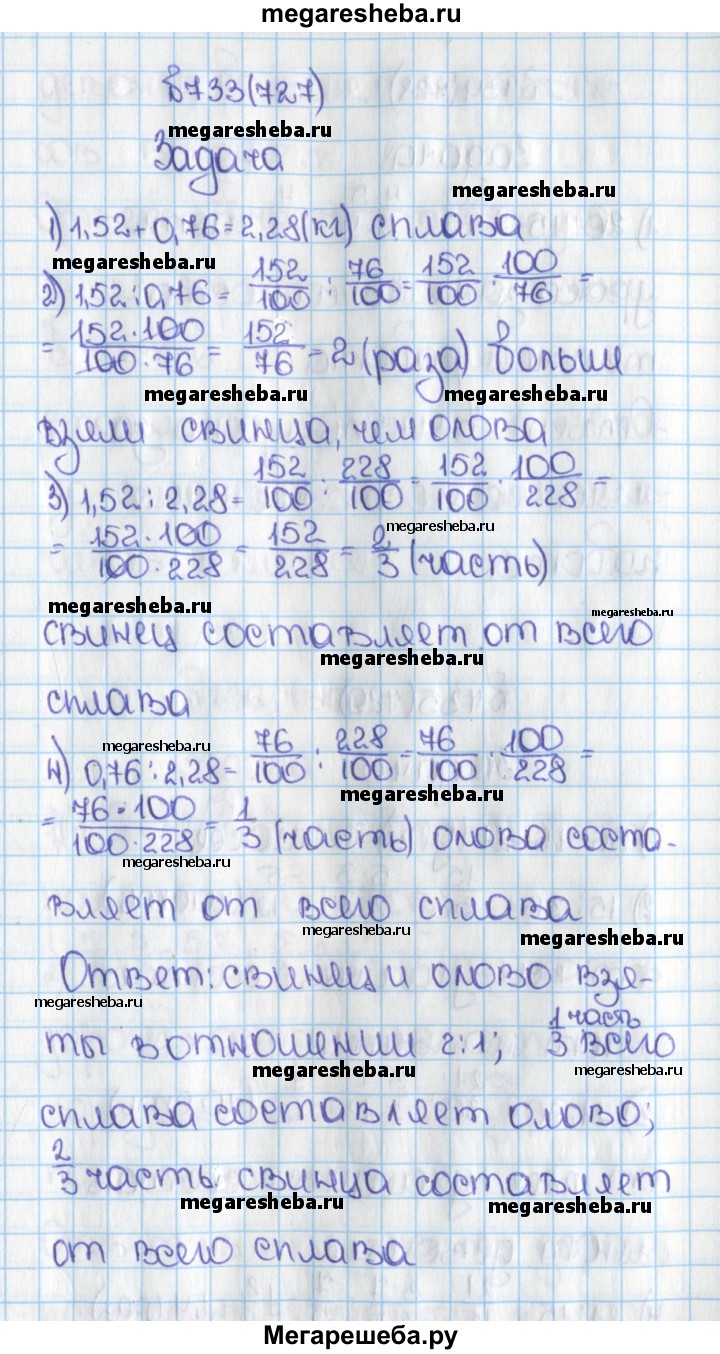 megaresheba.ru
733(727)
megaresheba.ru
Задача
megaresheba.ru
1) 1,52+0,76=2,28(кг) сплава
megaresheba.ru
2) 1,52:0,76= 152/100 : 76/100 = 152/100 · 100/76 =
= 152·100/100·76 = 152/76 = 2 (раза) больши
megaresheba.ru
взяли свинца, чем олова
3) 1,52:2,28= 152/100 : 228/100 = 152/100 · 100/228 =
megaresheba.ru
= 152·100/100·228 = 152/228 = 2/3 (часть)
megaresheba.ru
megaresheba.ru
свинец составляет от всего
megaresheba.ru
сплава
megaresheba.ru
4) 0,76:2,28= 76/100 : 228/100 = 76/100 · 100/228 =
megaresheba.ru
= 76·100/100·228 = 1/3 (часть) олова соста-
megaresheba.ru
вляет от всего сплава
megaresheba.ru
megaresheba.ru
Ответ: свинец и олово взя-
megaresheba.ru
ты в отношении 2:1; 1/3 часть всего
megaresheba.ru
megaresheba.ru
сплава составляет олово;
2/3 часть свинца составляет
megaresheba.ru
megaresheba.ru
от всего сплава
Мегарешеба.ру